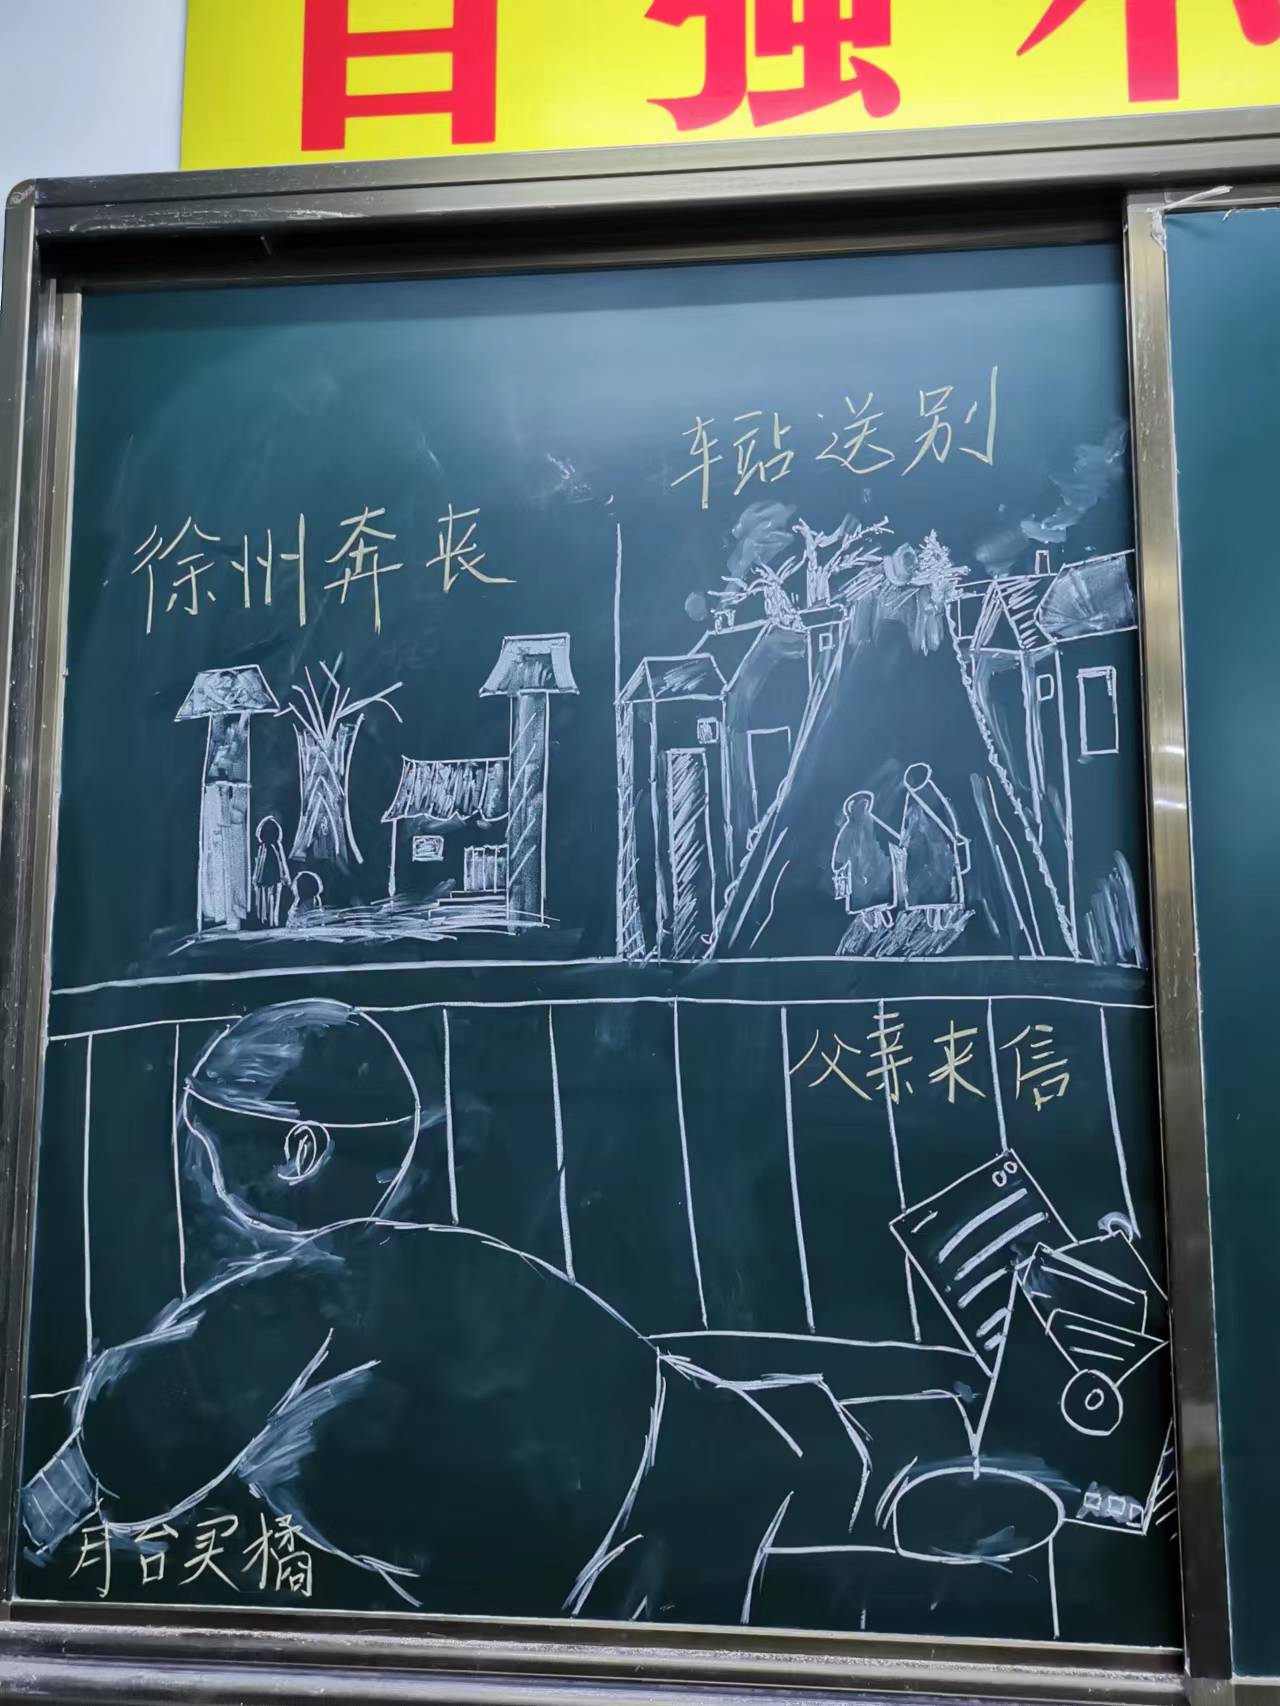 自强不
车站送别
徐州奔丧
父亲来信
月台买橘